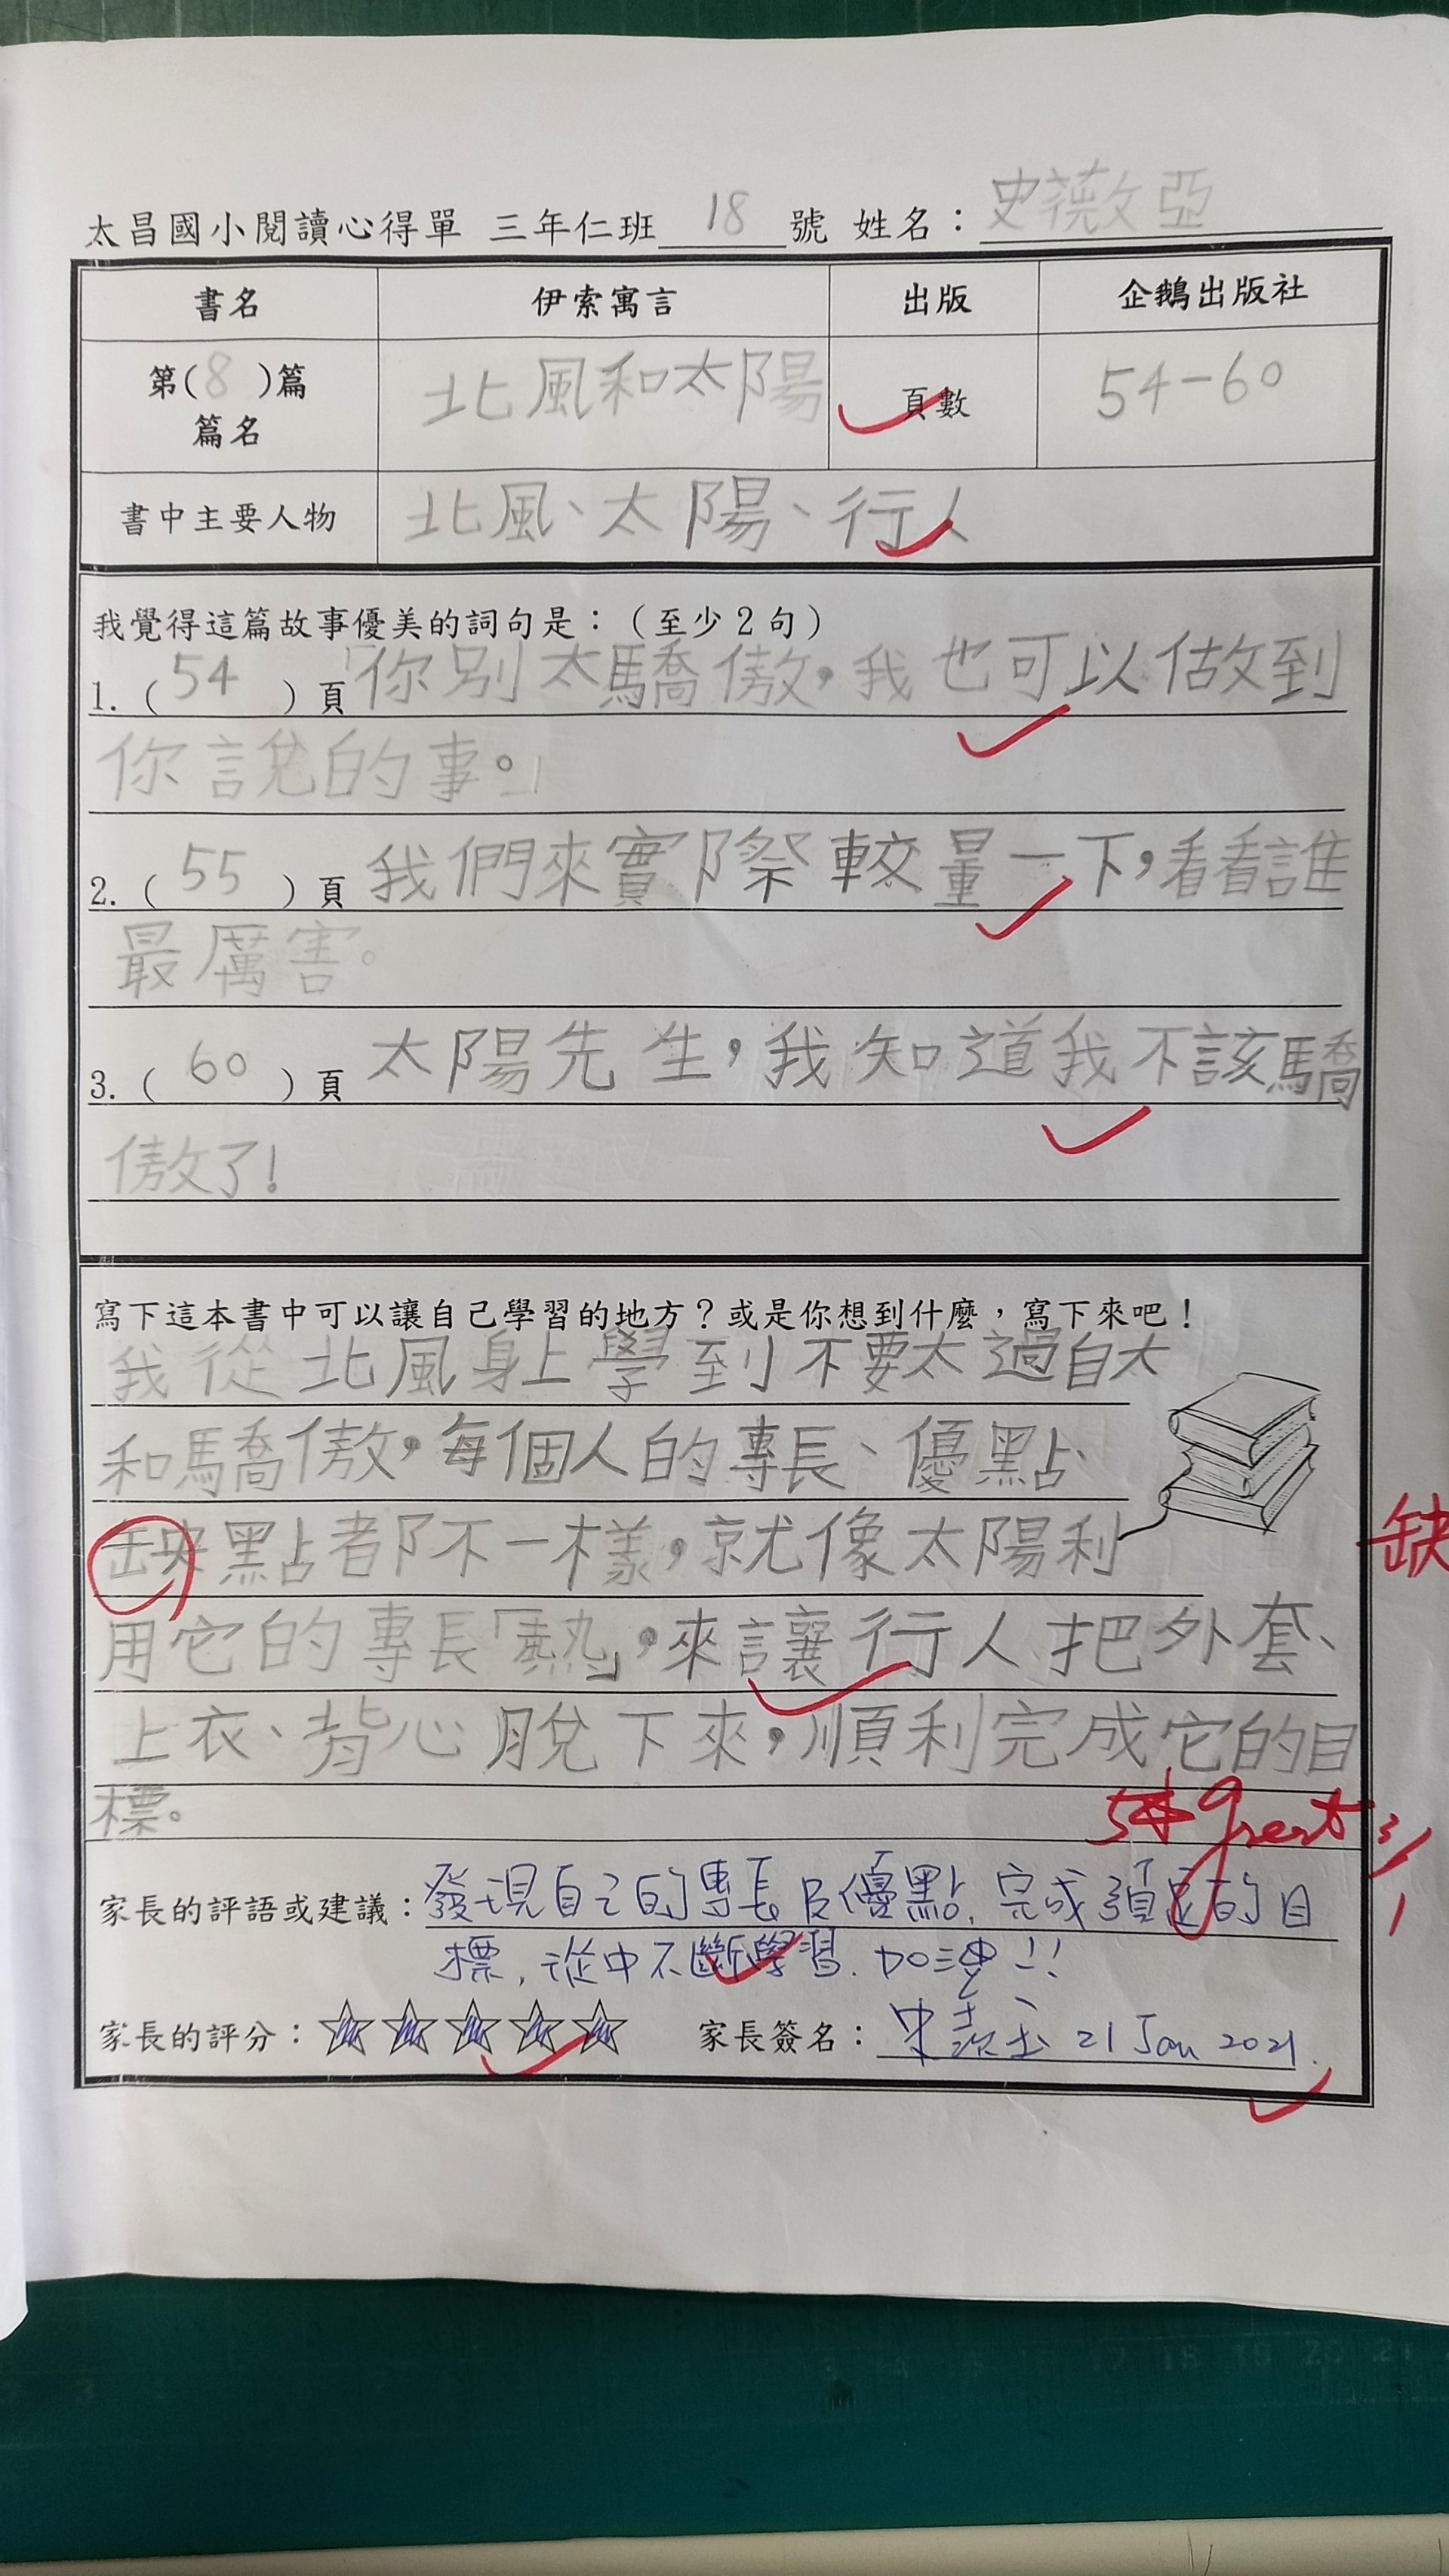 太昌國小閱讀心得單 三年仁班 18 號 姓名：史薇亞
書名 伊索寓言 出版 企鵝出版社
第(8)篇 篇名 北風和太陽 頁數 54-60
書中主要人物 北風、太陽、行人
我覺得這篇故事優美的詞句是：（至少2句）
1.（54）頁「你別太驕傲，我也可以做到
你說的事。」
2.（55）頁 我們來實際較量一下，看看誰
最厲害。
3.（60）頁 太陽先生，我知道我不該驕
傲了！
寫下這本書中可以讓自己學習的地方？或是你想到什麼，寫下來吧！
我從北風身上學到不要太過自大
和驕傲，每個人的專長、優點、
缺點都不一樣，就像太陽利
缺
用它的專長「熱」，來讓行人把外套、
上衣、背心脫下來，順利完成它的目
標。
great
家長的評語或建議：發現自己的專長及優點，完成預定的目
標，從中不斷學習. 加油!!
家長的評分：☆☆☆☆☆ 家長簽名： 21 Jan 2021.